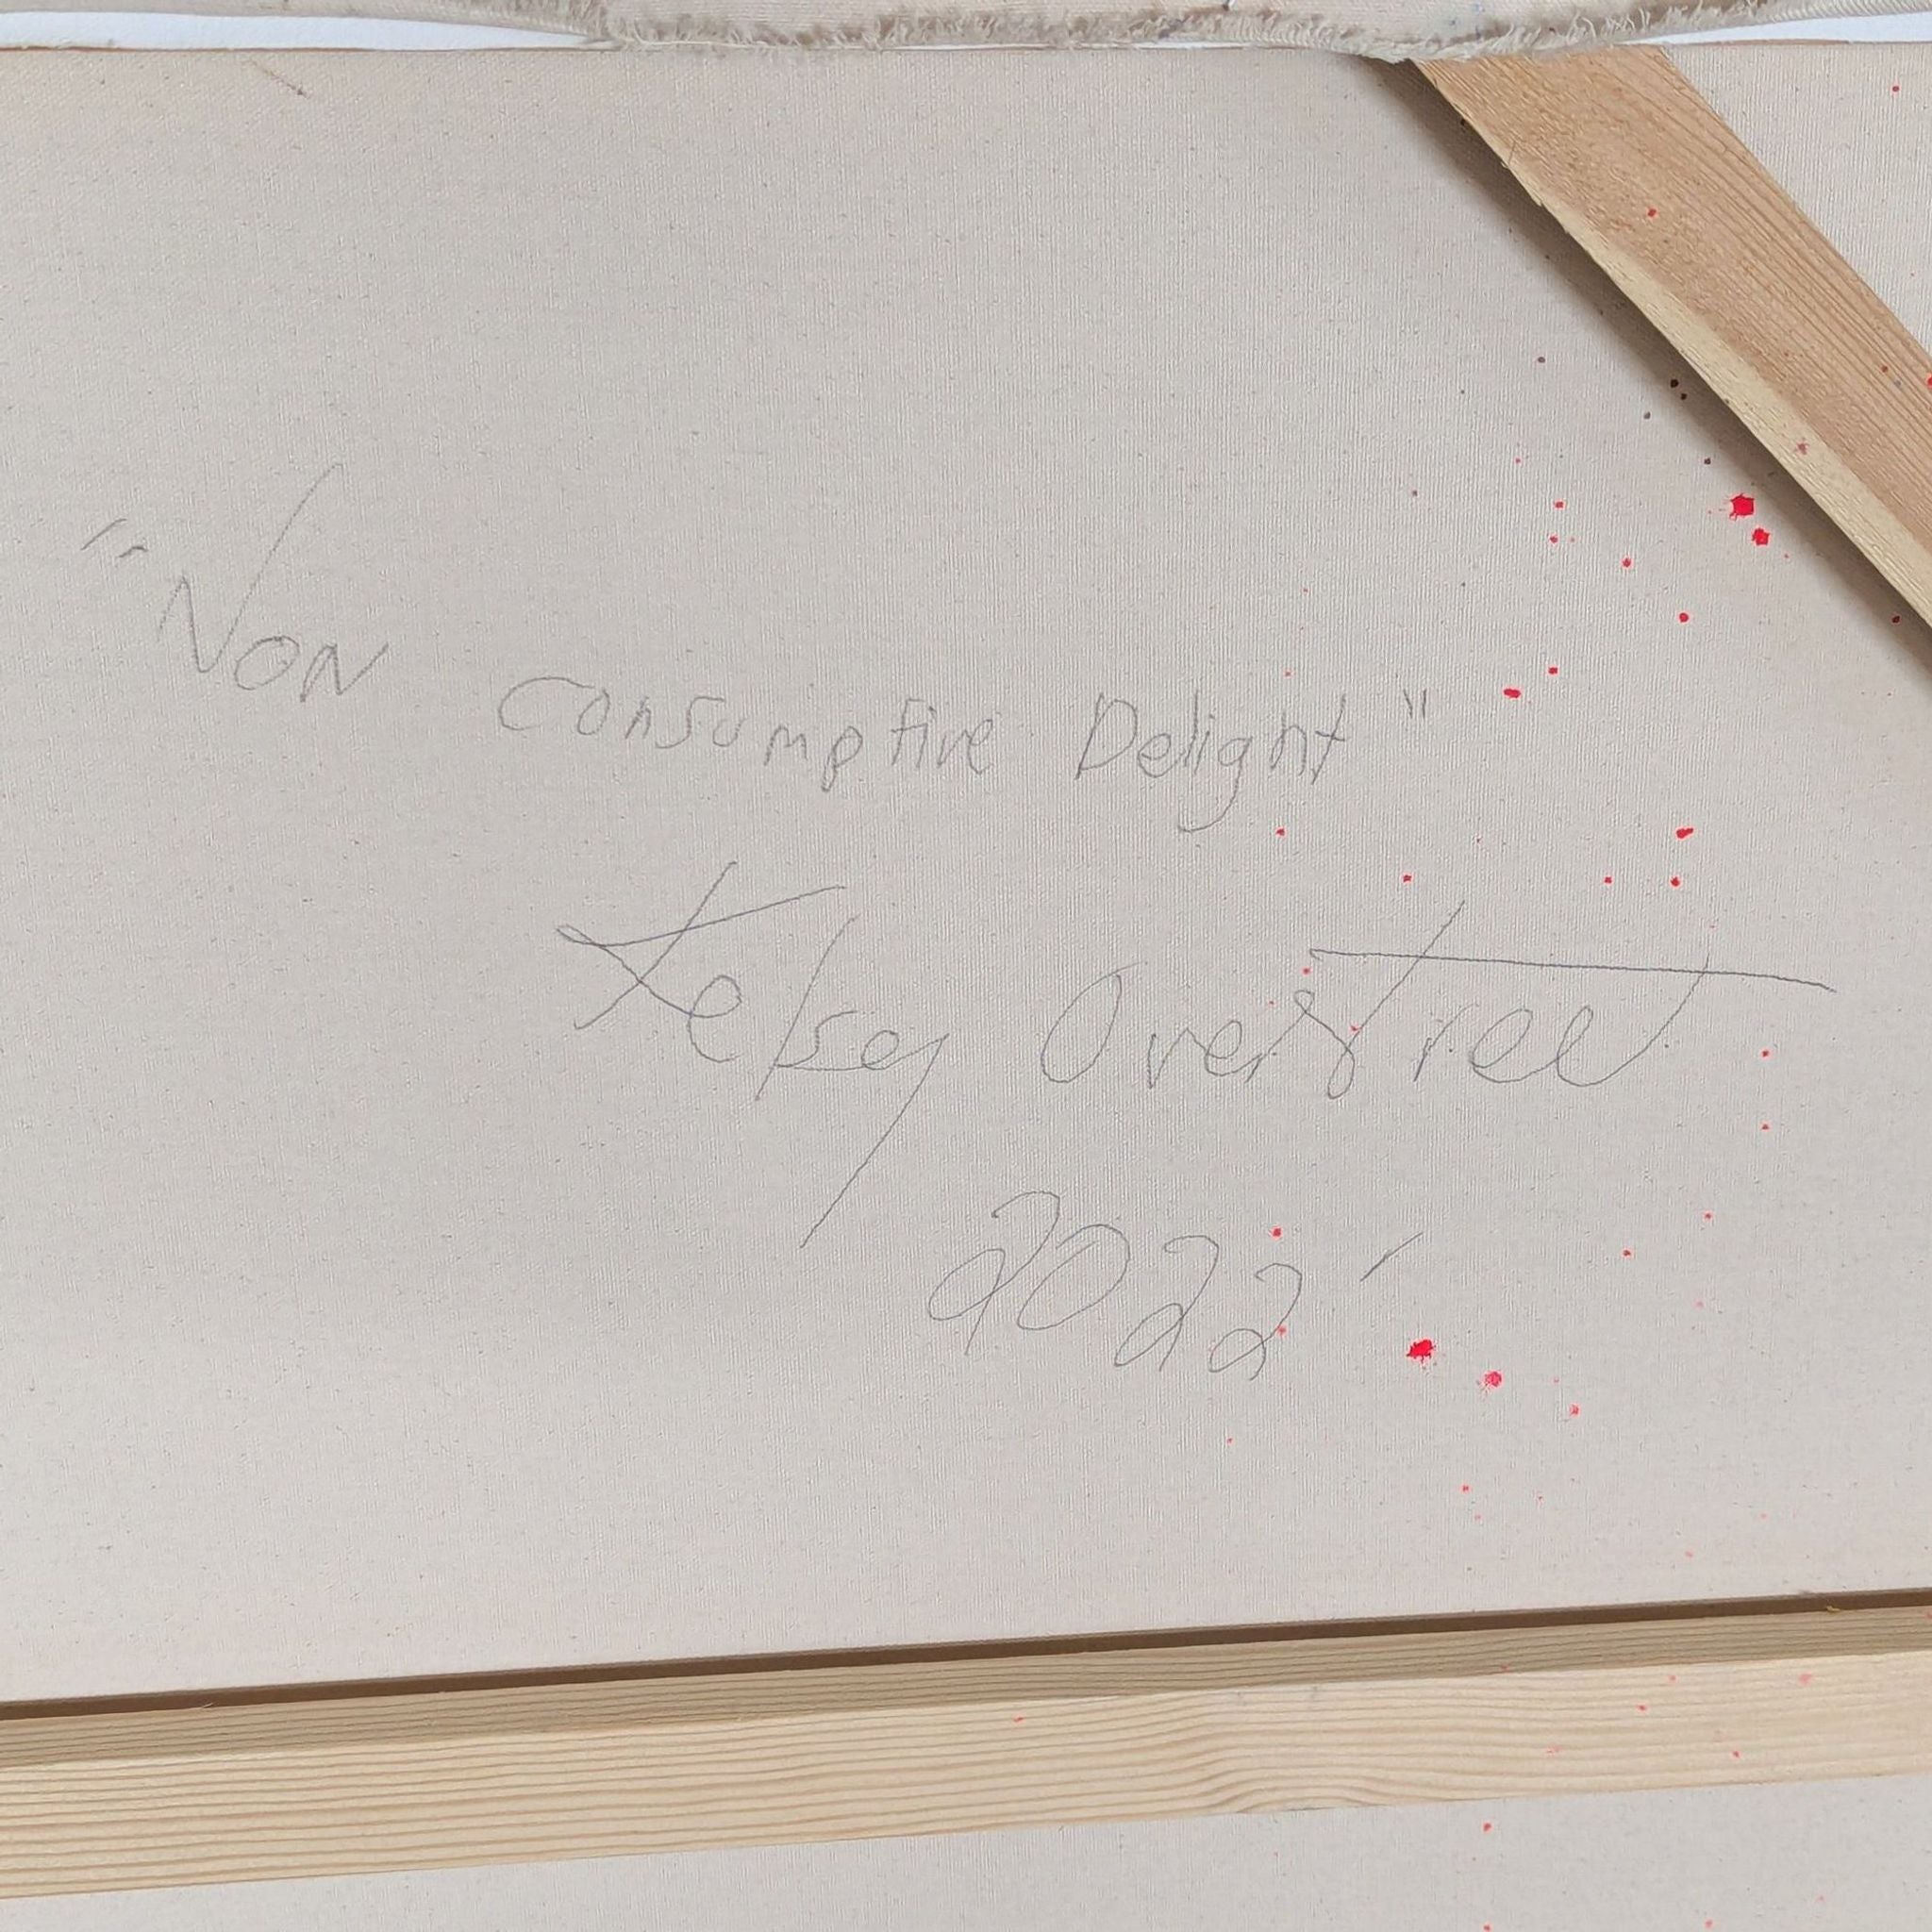 "Non Consumptive Delight"
Kelsey Overstreet
2022'